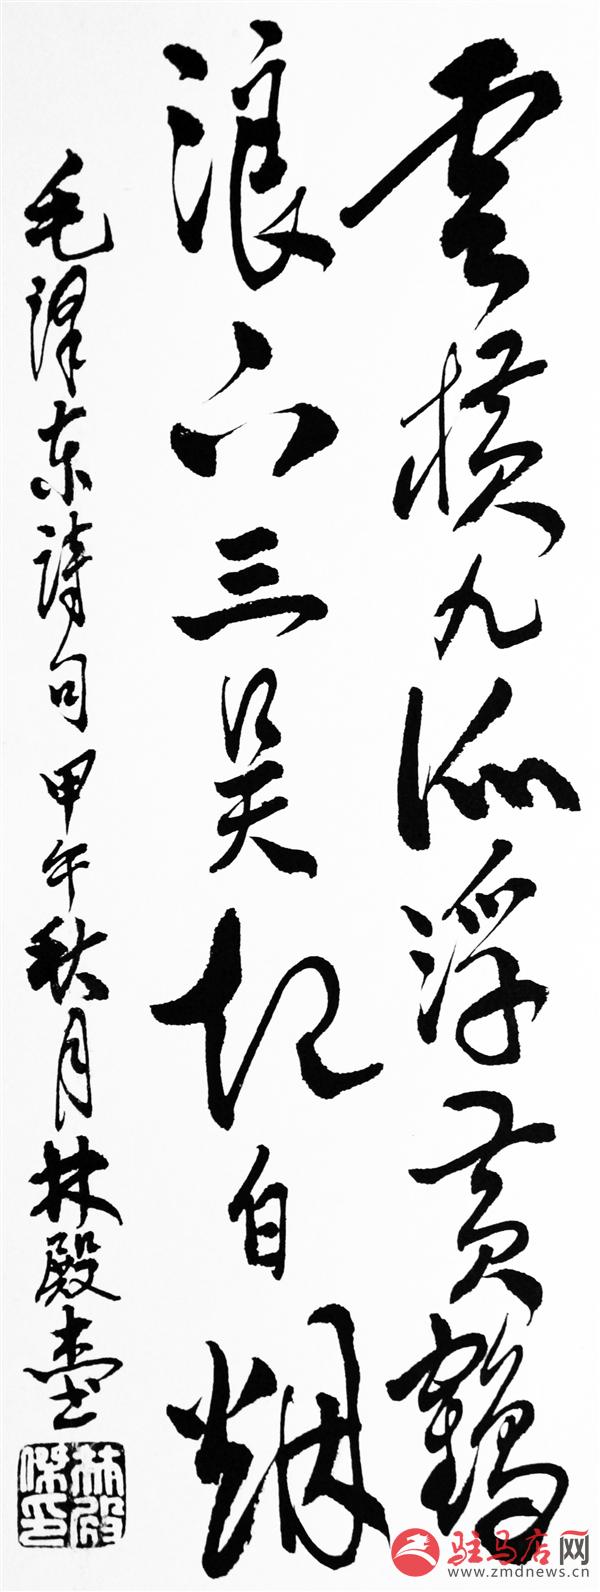 雲横九派浮黄鶴
浪下三吴起白烟
毛泽东詩句 甲午秋月 林殿杰书
林殿傑印
驻马店网
www.zmdnews.cn